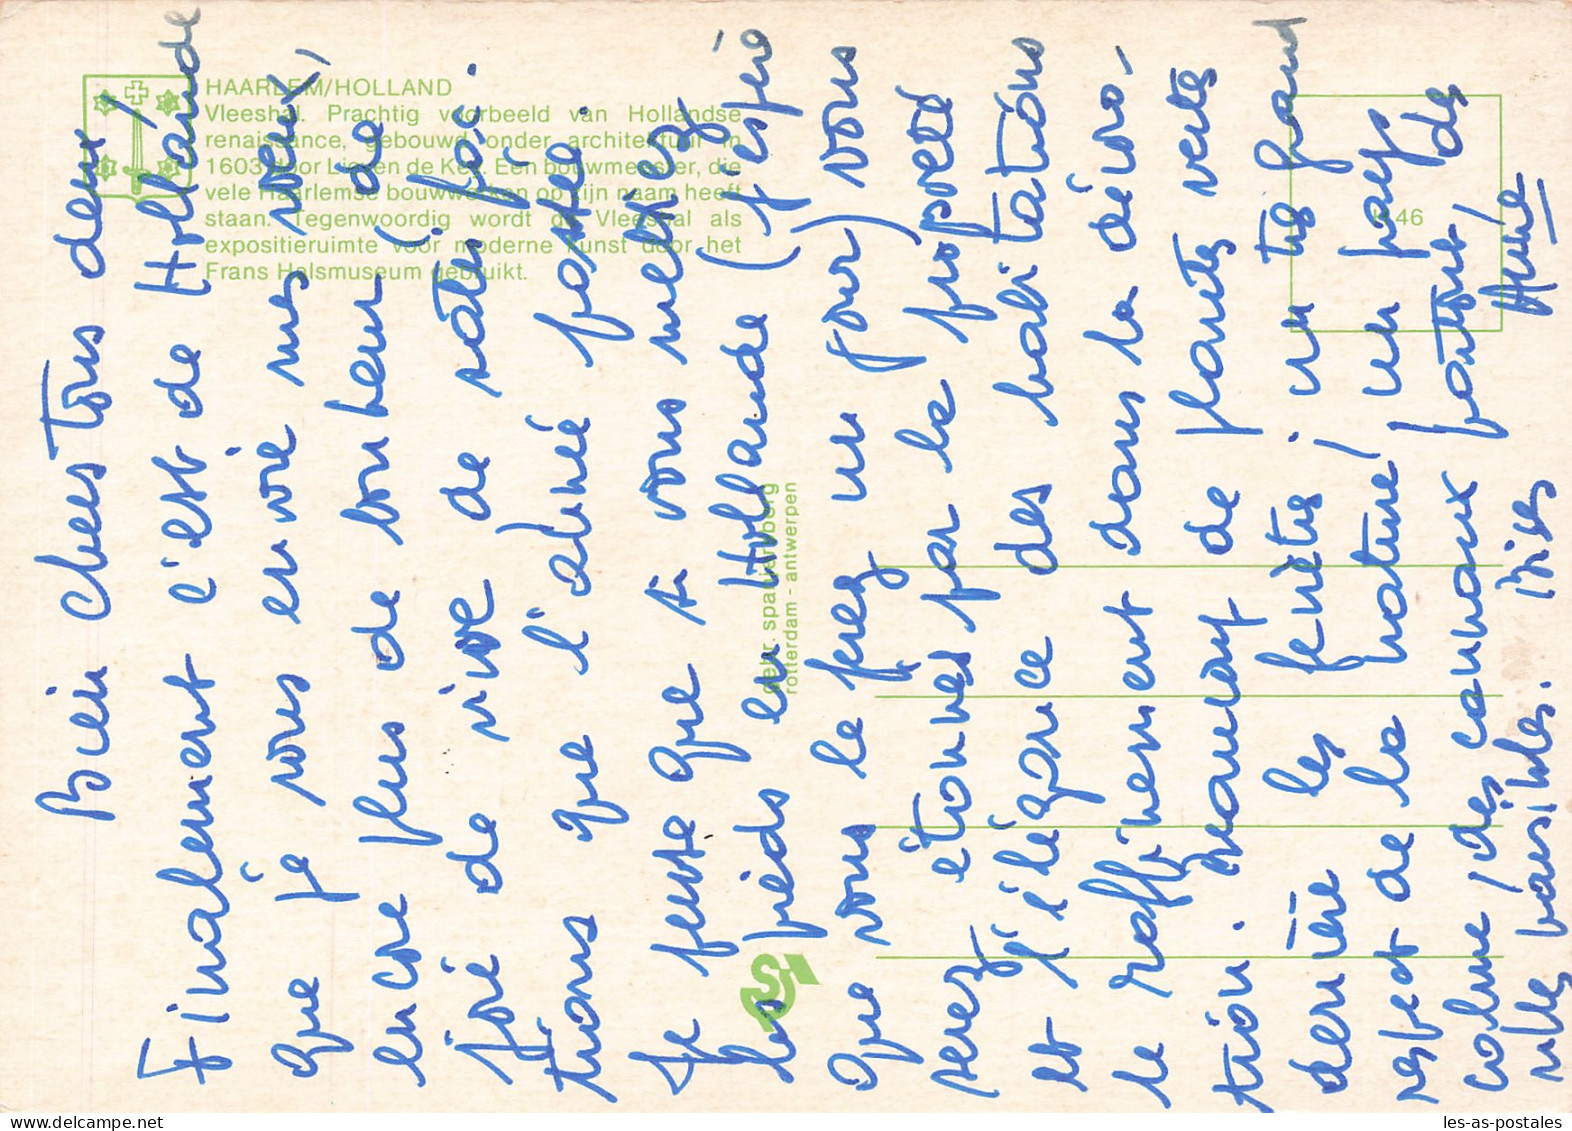 HAARLEM/HOLLAND
Vleeshal. Prachtig voorbeeld van Hollandse
renaissance, gebouwd onder architectuur in
1603 door Lieven de Key. Een bouwmeester, die
vele Haarlemse bouwwerken op zijn naam heeft
staan. Tegenwoordig wordt de Vleeshal als
expositieruimte voor moderne kunst door het
Frans Halsmuseum gebruikt.
46
gebr. spanjersberg
rotterdam - antwerpen
Bien chers tous deux,
Finalement c'est de Hollande
que je vous envoie mes vœux,
encore plus de bonheur (de
joie de vivre de satisfac.
tions que l'année passée.
Je pense que si vous mettez
les pieds en Hollande (j'espère
que vous le ferez un jour) vous
serez étonnés par la propreté
et l'élégance des habitations
le raffinement dans la décora-
tion. plantes vertes
derrière les fenêtres, un très grand
respect de la nature, un pays
calme, des canaux partout, des
villes paisibles. Bises